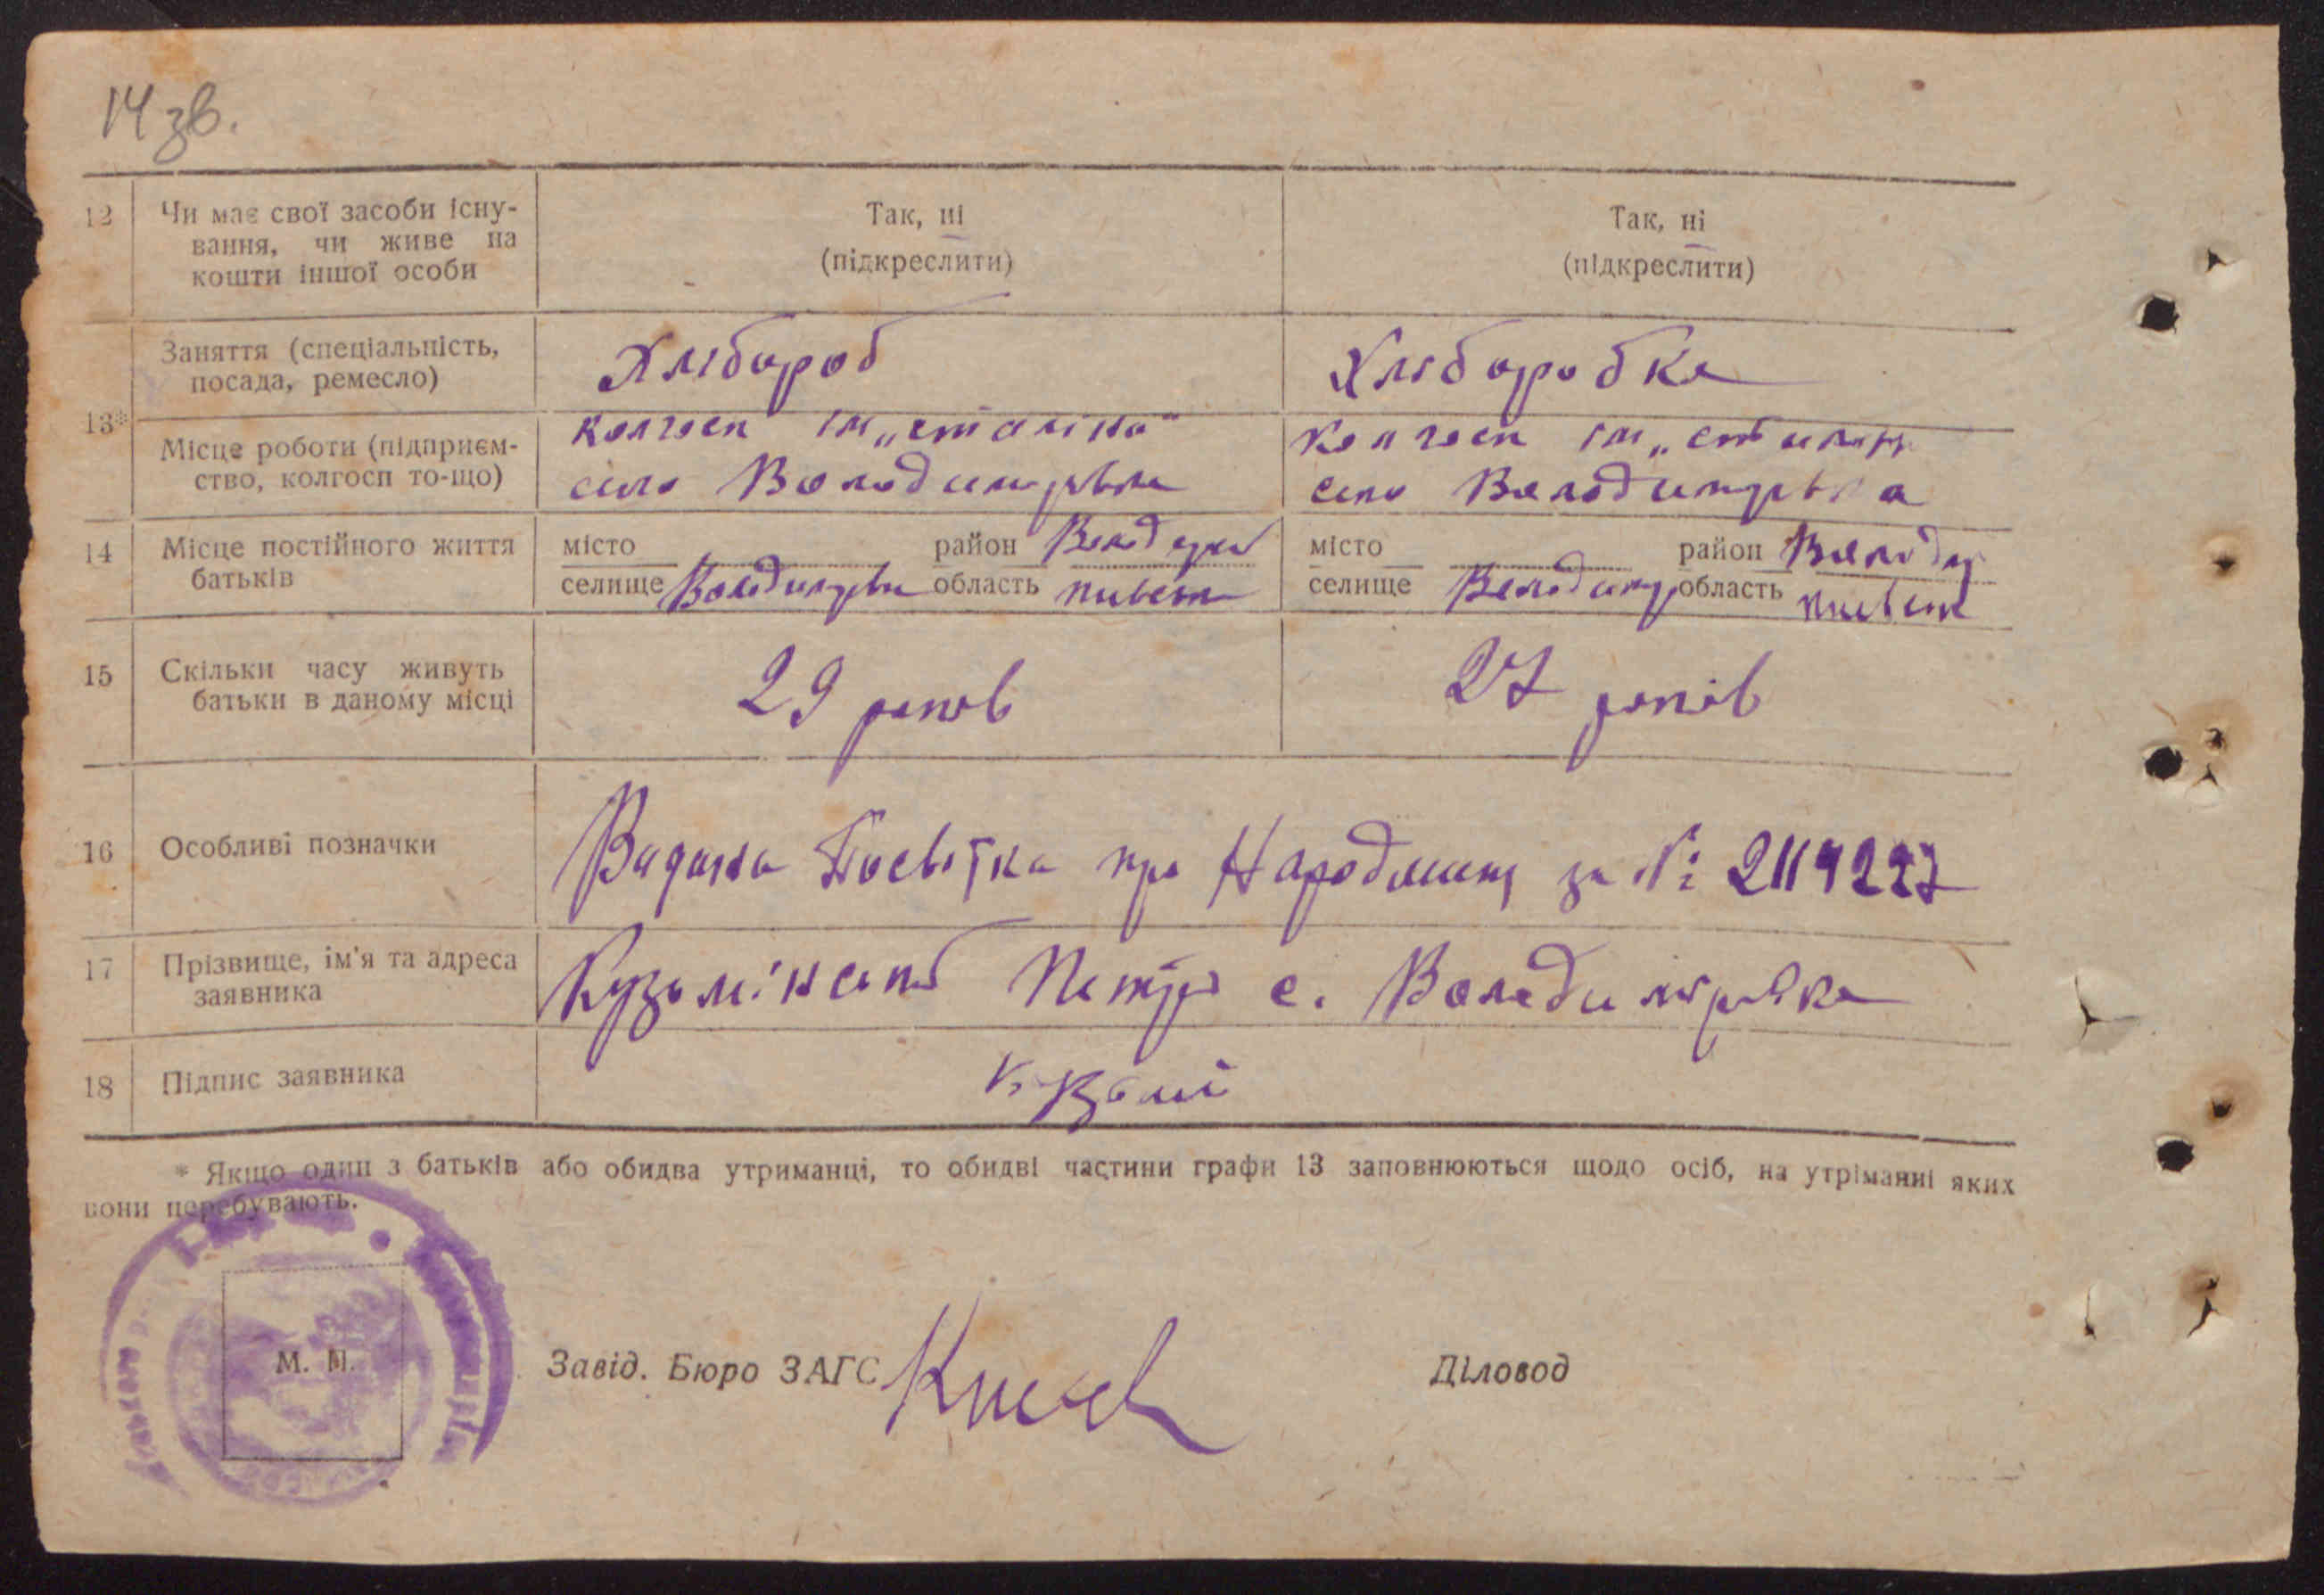 14 зв.
12 Чи має свої засоби існу- Так, ні Так, ні
вання, чи живе на (підкреслити) (підкреслити)
кошти іншої особи
13* Заняття (спеціальність, Хлібороб Хліборобка
посада, ремесло)
Місце роботи (підприєм- колгосп ім „сталіна" колгосп ім „
ство, колгосп то-що) село Володимирівка село Володимирівка
14 Місце постійного життя місто район місто район
батьків селище область селище область
15 Скільки часу живуть 29 років 27 років
батьки в даному місці
16 Особливі позначки Видана про за № 2119227
17 Прізвище, ім'я та адреса Петро с. Володимирівка
заявника
18 Підпис заявника
* Якщо один з батьків або обидва утриманці, то обидві частини графи 13 заповнюються щодо осіб, на утріманні яких
вони перебувають.
М. П.
Завід. Бюро ЗАГС Діловод